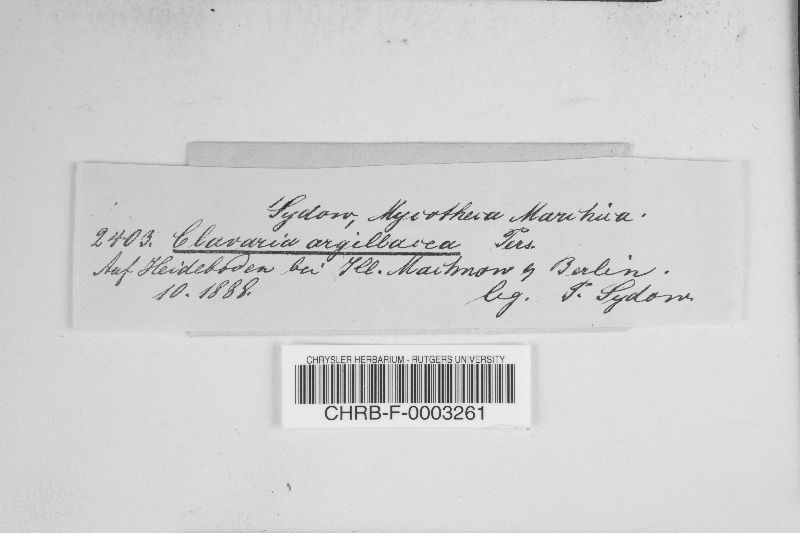 Sydow, Mycotheca Marchica.
2403. Clavaria argillacea Pers.
Auf Heideboden bei Kl. Machnow Berlin.
10. 1888. leg. P. Sydow
CHRYSLER HERBARIUM - RUTGERS UNIVERSITY
CHRB-F-0003261